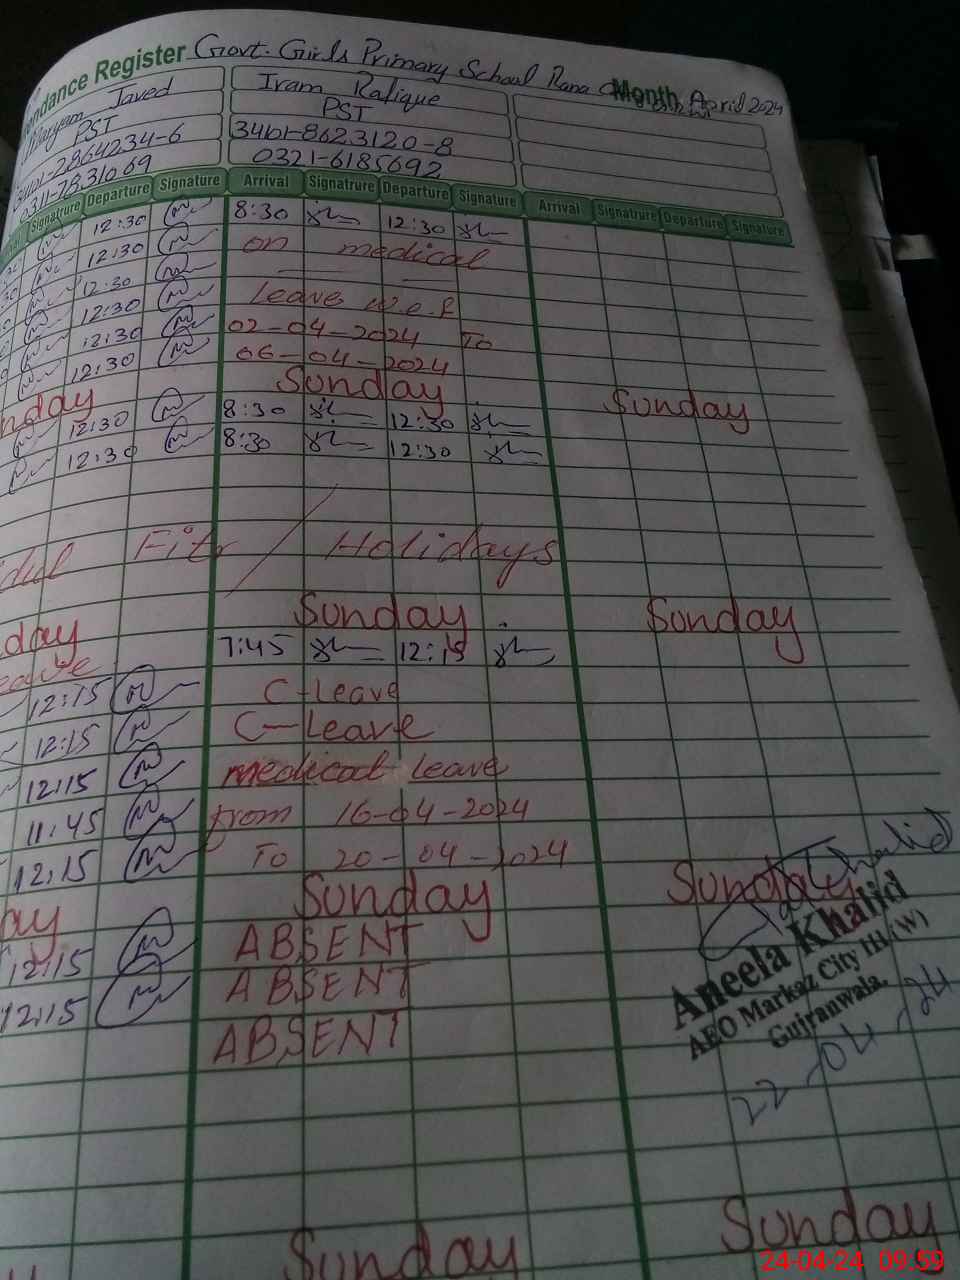 ndance Register Govt. Girls Primary School Rana Month April 2024
Maryam Javed Iram Rafique
PST PST
34101-2864234-6 34101-8623120-8
0311-7831069 0321-6185692
Signatrure Departure Signature Arrival Signatrure Departure Signature Arrival Signatrure Departure Signature
12:30 8:30 12:30
12:30 on medical
12:30
12:30 Leave w.e.f
12:30 02-04-2024 To
12:30 06-04-2024
nday Sunday Sunday
12:30 8:30 12:30
12:30 8:30 12:30
dul Fitr / Holidays
day Sunday Sunday
eave 7:45 12:15
12:15 C-Leave
12:15 C-Leave
12:15 medical Leave
11:45 from 16-04-2024
12:15 To 20-04-2024
ay Sunday Sunday
12:15 ABSENT
12:15 ABSENT
ABSENT
Aneela Khalid
AEO Markaz City III (W)
Gujranwala.
22-04-24
Sunday Sunday
24-04-24 09.59